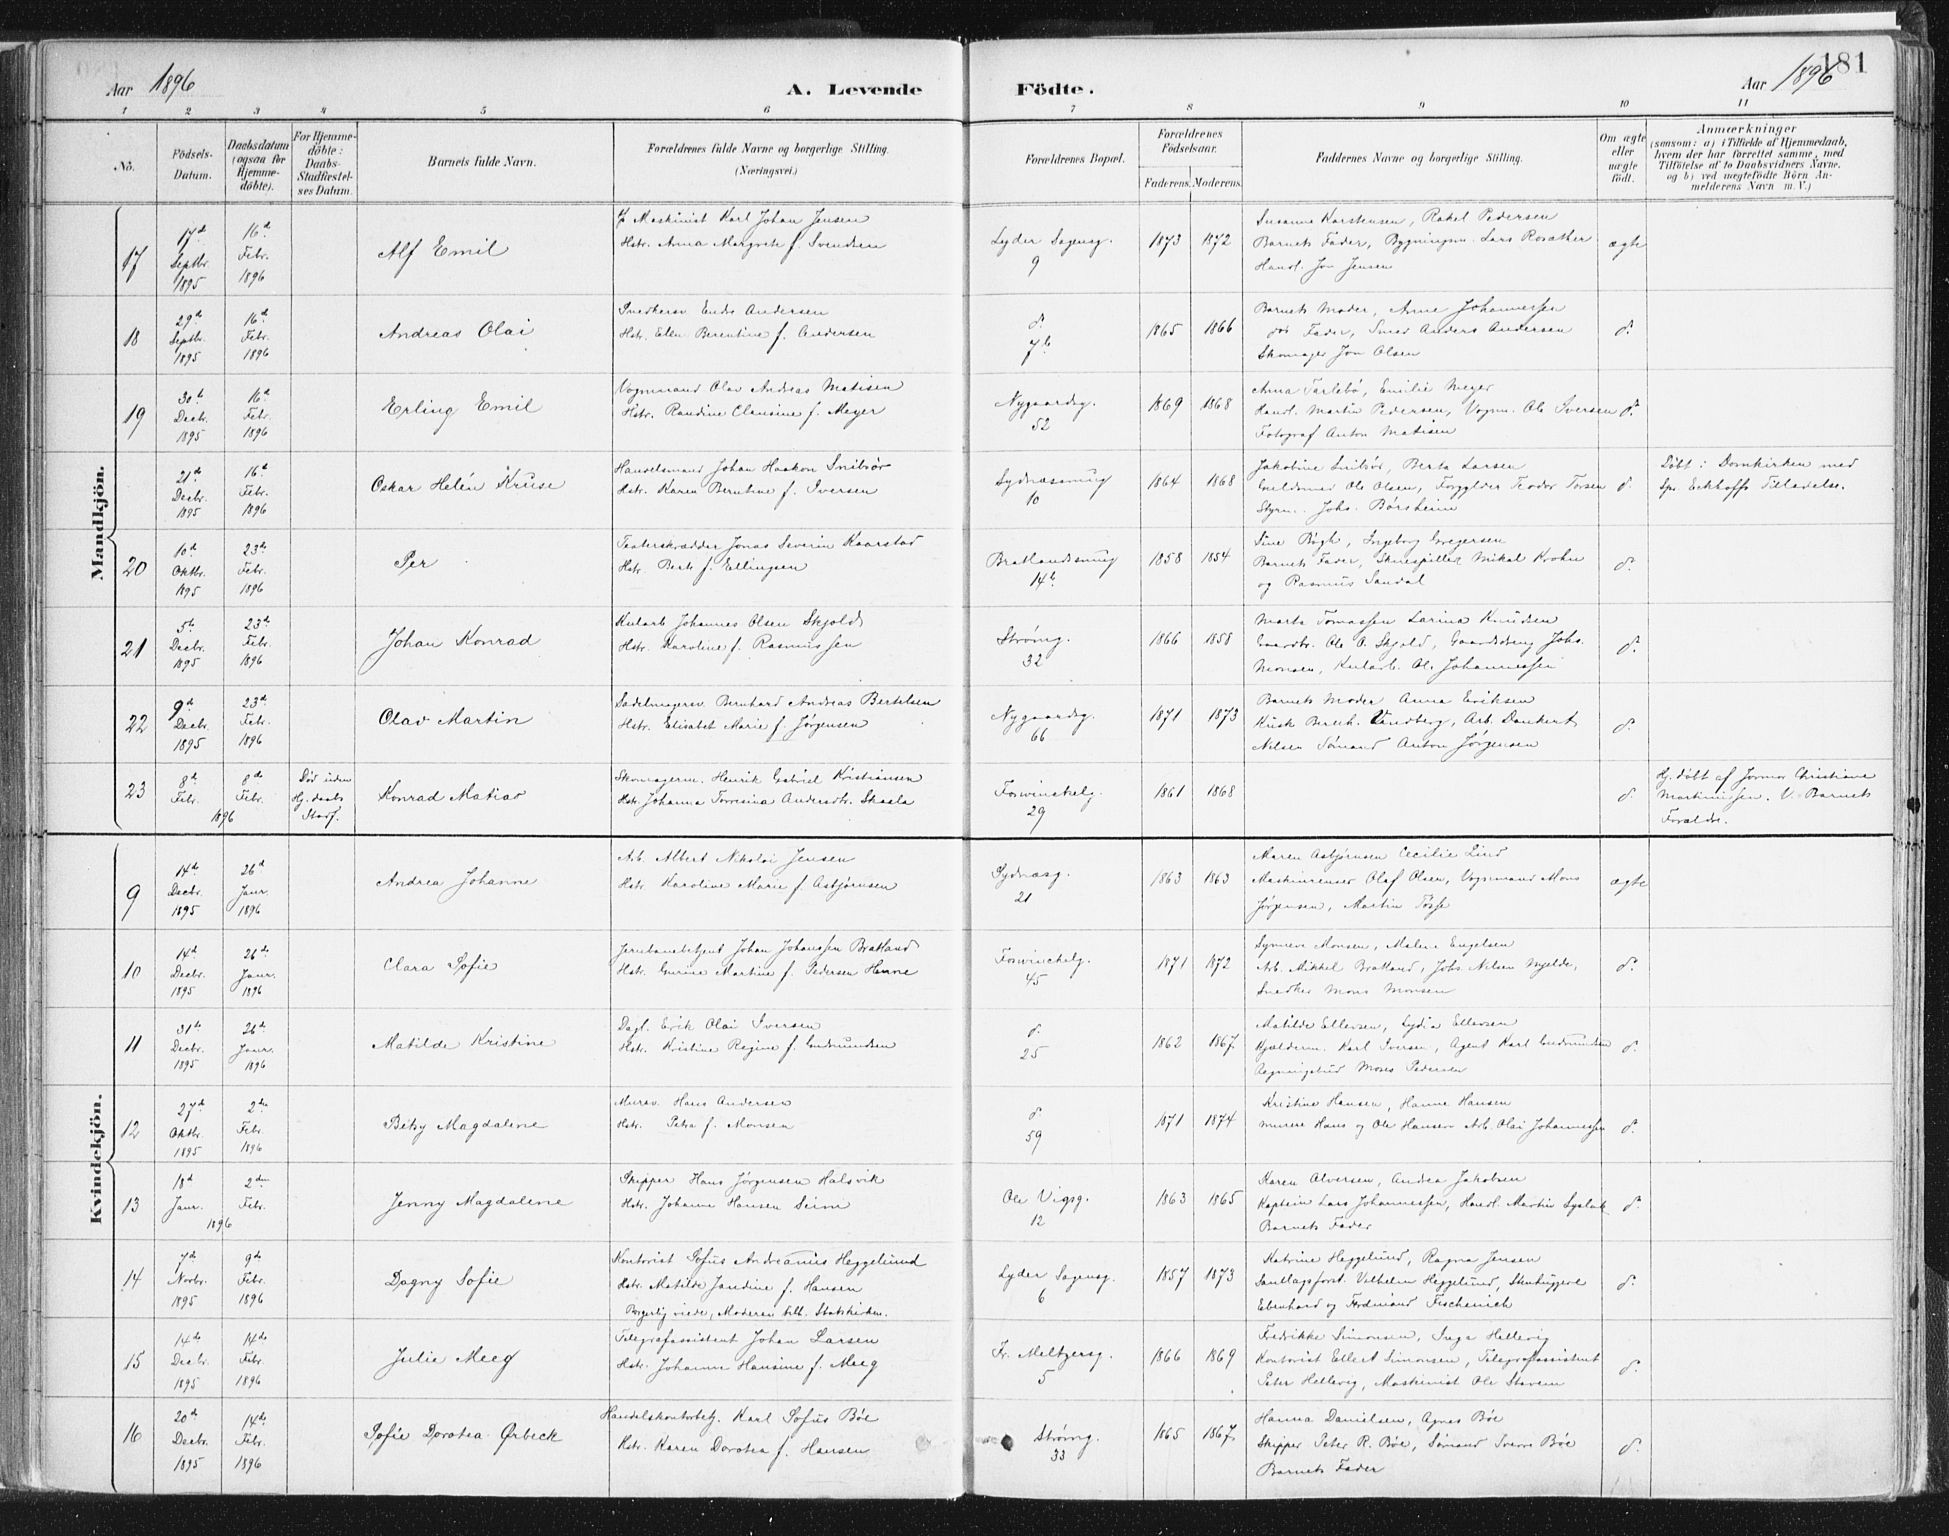 Aar 1896
A. Levende Födte.
Aar 1896
181
1 2 3 4 5 6 7 8 9 10 11
No.
Födsels-Datum.
Daabsdatum (ogsaa for Hjemme-döbte).
For Hjemme-döbte: Daabs-Stadfæstel-ses Datum.
Barnets fulde Navn.
Forældrenes fulde Navne og borgerlige Stilling. (Næringsvei.)
Forældrenes Bopæl.
Forældrenes Födselsaar.
Faderens. Moderens.
Faddernes Navne og borgerlige Stilling.
Om ægte eller uægte födt.
Anmærkninger
(saasom: a) i Tilfælde af Hjemmedaab, hvem der har forrettet samme, med Tilföielse af to Daabsvidners Navne, og b) ved uægtefödte Börn An-melderens Navn m. V.)
Mandkjön.
17
17d Septbr. 1895
16d Febr. 1896
Alf Emil
Maskinist Karl Johan Jensen
Hstr. Anna Margrete f. Svendsen
Lyder Sagensg. 9
1873 1872
Susanne Karstensen, Rakel Pedersen
Barnets Fader, Bygningsm. Lars Rosæther
Handl. Jon Jensen
ægte
18
29d Septbr. 1895
16d Febr. 1896
Andreas Olai
Snedkersv. Endre Andersen
Hstr. Elen Berentine f. Andersen
d. 7b
1865 1866
Barnets Moder, Anne Johannessen
dos Fader, Smed Anders Andersen
Skomager Jon Olsen
d.
19
30d Decbr. 1895
16d Febr. 1896
Erling Emil
Vognmand Olav Andreas Matisen
Hstr. Raudine Clausine f. Meyer
Nygaardsg. 52
1869 1868
Anna Tarlebø, Emilie Meyer
Handl. Martin Pedersen, Vognm. Ole Iversen
Fotograf Anton Matisen
d.
21d Decbr. 1895
16d Febr. 1896
Oskar Helén Kruse
Handelsmand Johan Haakon Snibsør
Hstr. Karen Berntine f. Iversen
Sydnæssmug 10
1864 1868
Jakobine Snibsør, Berta Larsen
Guldsmed Ole Olsen, Forgylder Teodor Torsen
Styrm. Johs. Børsheim
d.
Døbt i Domkirken med
Spr. Eckhoffs Tilladelse.
20
10d Oktbr. 1895
23de Febr. 1896
Per
Teaterskrædder Jonas Severin Kaarstad
Hstr. Berte f. Ellingsen
Bratlandssmug 14b
1858 1854
Sine Bøgh, Ingeborg Gregersen
Barnets Fader, Skuespiller Mikal Krohn
og Rasmus Sandal
d.
21
5te Decbr. 1895
23de Febr. 1896
Johan Konrad
Kularb. Johannes Olsen Skjold
Hstr. Karoline f. Rasmussen
Strømg. 32
1866 1858
Marta Tomassen Larina Knudsen
Gaardbr. Ole O. Skjold, Gaardsdreng Johs.
Monsen, Kularb. Ol. Johannessen
d.
22
9d Decbr. 1895
23de Febr. 1896
Olav Martin
Sadelmagersv. Bernhard Andreas Bertelsen
Hstr. Elisabet Marie f. Jørgensen
Nygaardsg. 66
1871 1873
Barnets Moder Anna Eriksen
Kusk Bernh. Sandberg, Arb. Dankert
Nilsen Sømand Anton Jørgensen
d.
23
8de Febr. 8de Febr. 1896
Død uden Hj.daabs Stadf.
Konrad Matias
Skomagerm. Henrik Gabriel Kristiansen
Hstr. Johanna Torresina Andersdtr. Skaala
Fosvinckelg. 29
1861 1868
d.
Hj. døbt af Jormor Christiane
Martinussen. V. Barnets
Forældre.
Kvindekjön.
9
14de Decbr. 1895
26d Janr. 1896
Andrea Johanne
Arb. Albert Nikolai Jensen
Hstr. Karoline Marie f. Asbjørnsen
Sydnæsg. 21
1863 1863
Maren Asbjørnsen Cecilie Lind
Maskinrenser Olaf Olsen, Vognmand Mons
Jørgensen, Martin Tøsse
ægte
10
14de Decbr. 1895
26de Janr. 1896
Clara Sofie
Jernbanebetjent Johan Johansen Bratland
Hstr. Gurine Martine f. Pedersen Henne
Fosvinckelg. 45
1871 1872
Synneve Monsen, Malene Engelsen
Arb. Mikkel Bratland, Johs Nilsen Mjelde,
Snedker Mons Monsen
d.
11
31te Decbr. 1895
26de Janr. 1896
Matilde Kristine
Dagl. Erik Olai Iversen
Hstr. Kristine Regine f. Gudmundsen
d. 25
1862 1867
Matilde Ellevsen, Lydia Ellevsen
Kjælderm. Karl Iversen, Agent Karl Gudmundsen
Regningsbud Moses Pedersen
d.
12
27d Oktbr. 1895
2den Febr. 1896
Betsy Magdalene
Mursv. Hans Andersen
Hstr. Petra f. Monsen
d. 59
1871 1874
Kristine Hansen, Hanne Hansen
Murere Hans og Ole Hansen Arb. Olai Johannessen
d.
13
18d Janr. 2den Febr. 1896
Jenny Magdalene
Skipper Hans Jørgensen Halsvik
Hstr. Johanne Hansen Seim
Ole Vigsg. 12
1863 1865
Karen Alversen, Andrea Jakobsen
Kaptein Lars Johannessen, Handl. Martin Syslak
Barnets Fader
d.
14
7de Novbr. 1895
9de Febr. 1896
Dagny Sofie
Kontorist Sofus Andreanus Heggelund
Hstr. Matilde Jandine f. Hansen
Borgerlig viede, Moderen till. Statskirken.
Lyder Sagensg. 6
1857 1873
Katrine Heggelund, Ragna Jensen
Vilhelm Heggelund, Stenhuggere
Ebenhard og Ferdinand Fischenich
d.
15
14de Decbr. 1895
14de Febr. 1896
Julie Meeg
Telegrafassistent Johan Larsen
Hstr. Johanne Hansine f. Meeg
Fr. Meltzersg. 5
1866 1869
Fredrikke Simonsen, Inga Hellevig
Kontorist Ellert Simonsen, Telegrafassistent
Peter Hellevig, Maskinist Ole Stavem
d.
16
20de Decbr. 1895
14de Febr. 1896
Sofie Dorotea Ørbeck
Handelskontorbetj. Karl Sofus Bøe
Hstr. Karen Dorotea f. Hansen
Strømg. 33
1865 1867
Hanna Danielsen, Agnes Bøe
Skipper Peter R. Bøe, Sømand Sverre Bøe
Barnets Fader
d.